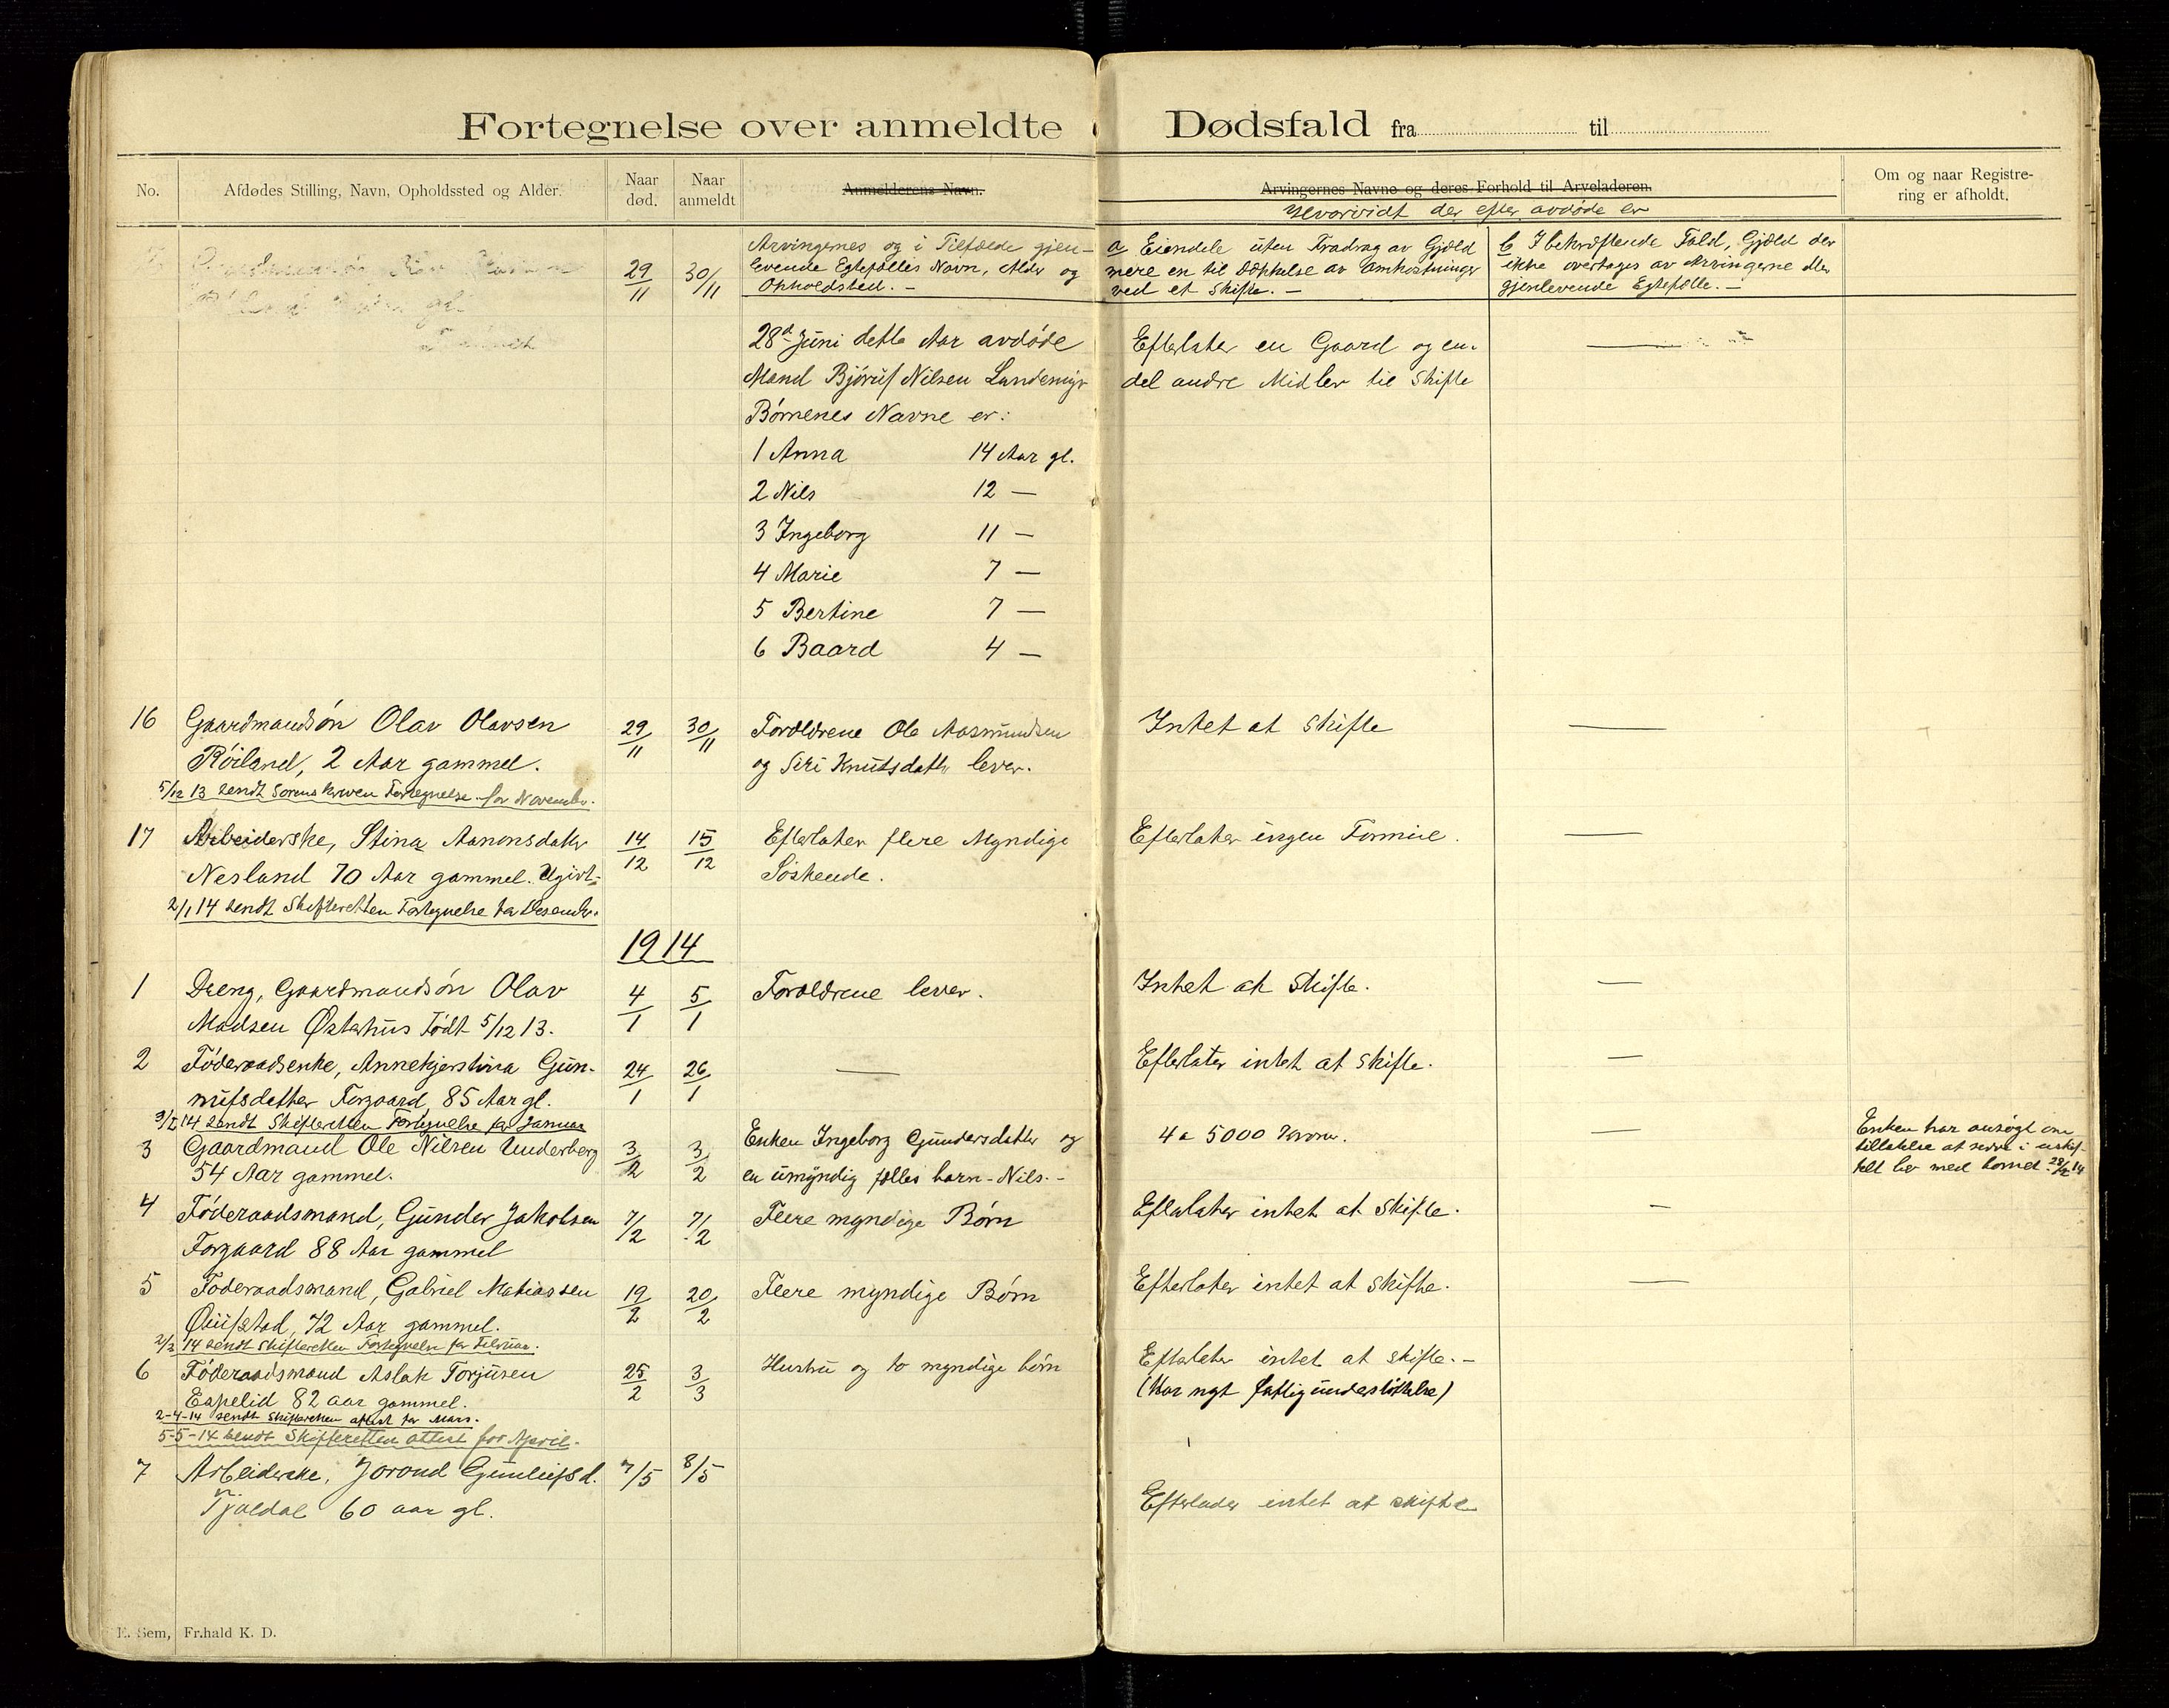 Fortegnelse over anmeldte Dødsfald fra til
No.
Afdødes Stilling, Navn, Opholdssted og Alder.
Naar død.
Naar anmeldt
Anmelderens Navn.
Arvingernes Navne og deres Forhold til Arveladeren.
Hvorvidt der efter avdøde er
Om og naar Registre-
ring er afholdt.
Arvingernes og i Tilfælde gjen-
levende Egtefælles Navn, Alder og
Opholdsted. -
a Eiendele uten Fradrag av Gjæld
mere en til Dækkelse av Omkostninger
ved et Skifte. -
b I bekræftende Fald, Gjæld der
ikke overtages av Arvingerne eller
gjenlevende Egtefælle. -
29/11 30/11
28d Juni dette Aar avdøde
Mand Bjørulf Nilsen Landemyr
Børnenes Navne er:
1 Anna 14 Aar gl.
2 Nils 12 —
3 Ingeborg 11 —
4 Marie 7 —
5 Bertine 7 —
6 Baard 4 —
Efterlater en Gaard og en-
del andre Midler til Skifte
16 Gaardmandsøn Olav Olavsen 29/11 30/11 Forældrene Ole Aasmundsen Intet at Skifte —
Røiland, 2 Aar gammel. og Siri Knutsdatter lever.
5/12 13 sendt Sorenskriven Fortegnelse for November.
17 Arbeiderske, Stina Aanonsdatter 14/12 15/12 Efterlater flere Myndige Efterlater ingen Formue. —
Nesland 70 Aar gammel. Ugivt- Søskende.
2/1 14 sendt Skifteretten Fortegnelse for Desember.
1914
1 Dreng, Gaardmandsøn Olav 4/1 5/1 Forældrene lever. Intet at Skifte. —
Madsen Østerhus Født 5/12 13.
2 Føderaadsenke, Annekjerstina Gun- 24/1 26/1 — Efterlater intet at skifte. —
nufsdatter Forgaard 85 Aar gl.
3/2 14 sendt Skifteretten Fortegnelse for Januar
3 Gaardmand Ole Nilsen Underberg 3/2 3/2 Enken Ingeborg Gundersdatter og 4 a 5000 Kroner. —
54 Aar gammel. en umyndig fælles barn - Nils. -
Enken har ansøgt om
tillatelse at sidde i uskif-
tet bo med barnet. 28/2 14
4 Føderaadsmand, Gunder Jakobsen 7/2 7/2 Flere myndige Børn Efterlater intet at Skifte. -
Forgaard 88 Aar gammel
5 Føderaadsmand, Gabriel Matiassen 19/2 20/2 Flere myndige Børn Efterlater intet at Skifte. —
72 Aar gammel.
2/3 14 sendt Skifteretten Fortegnelse for Februar.
6 Føderaadsmand Aslak Torjusen 25/2 3/3 Hustru og to myndige børn Efterlater intet at skifte. -
Espelid 82 aar gammel. (Har nyt fattigunderstøttelse)
2-4-14 sendt Skifteretten attest for Mars.
5-5-14 sendt Skifteretten attest for April.
7 Arbeiderske, Jorond Gunleifsd. 7/5 8/5
Tjaldal 60 aar gl. Efterlader intet at skifte
E. Sem, Fr.hald K. D.